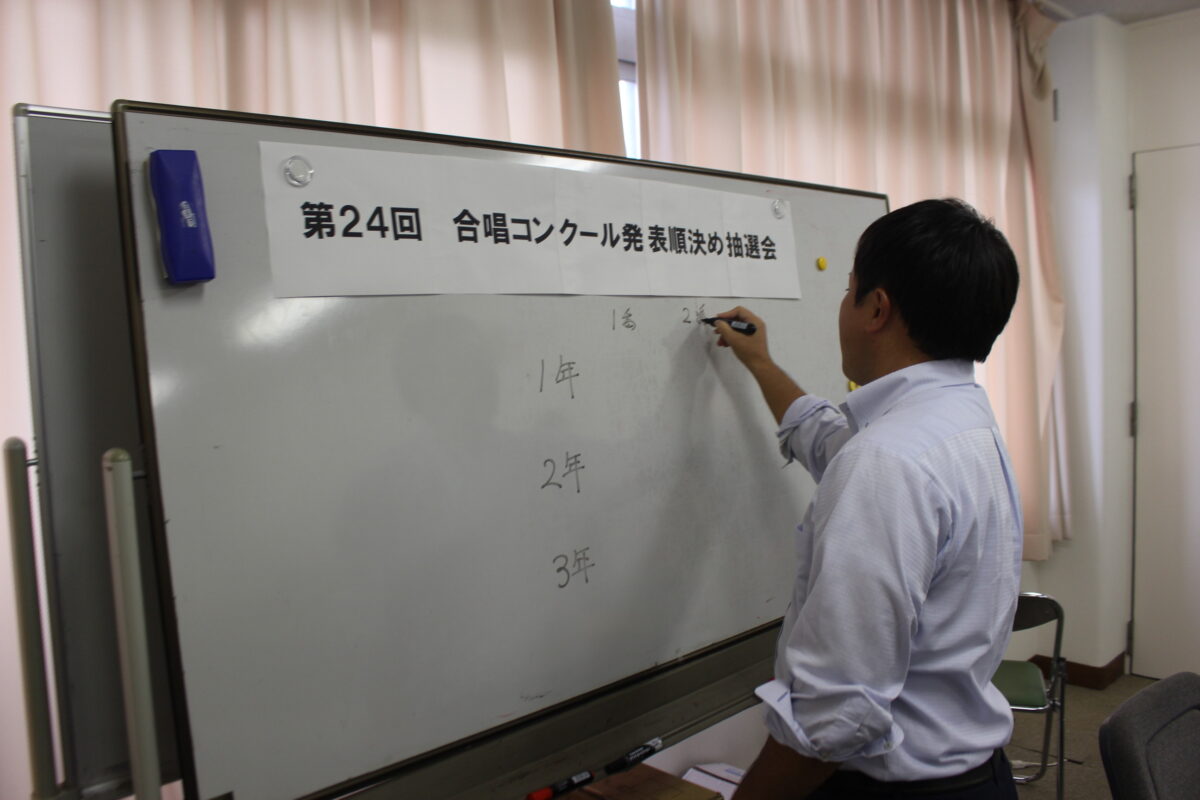 第24回 合唱コンクール発表順決め抽選会
1番 2番
1年
2年
3年